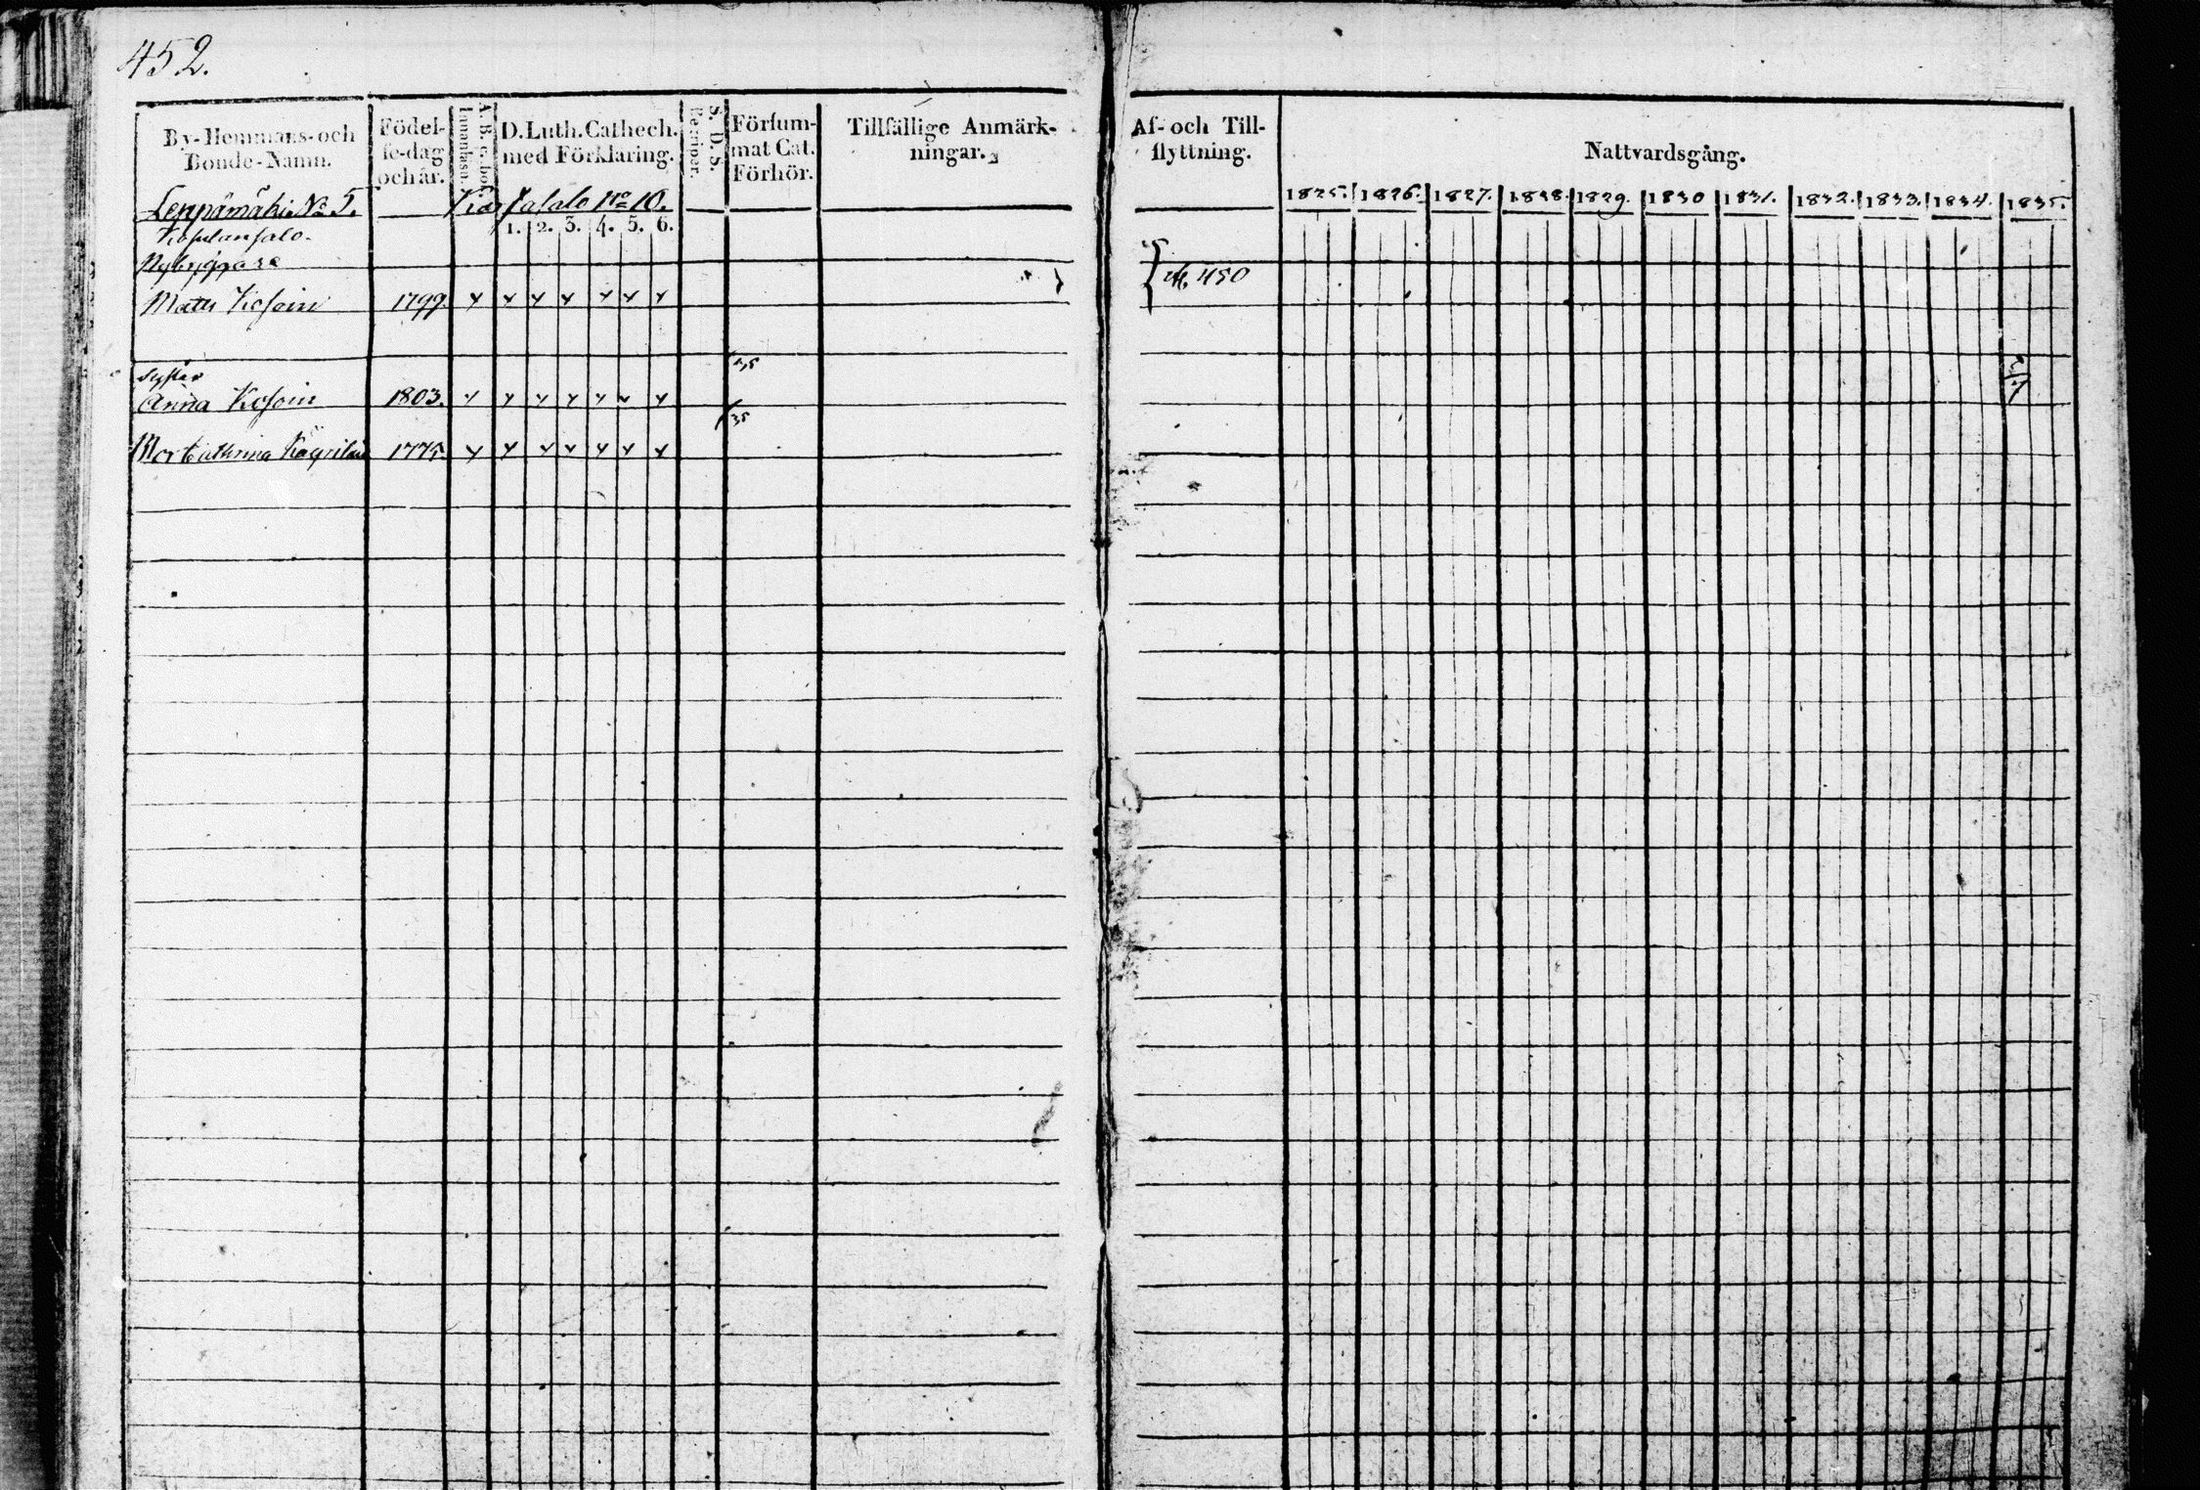 452.
By-Hemmans-och Bonde-Namn.
Födel-se-dag och år.
A. B. c. bok Innanläsa.
D. Luth. Cathech. med Förklaring.
S. D. S. Perciper.
Försum-mat Cat. Förhör.
Tillfällige Anmärk-ningar.
Af- och Till-flyttning.
Nattvardsgång.
Leppämäki No 5.
No 10.
1. 2. 3. 4. 5. 6.
1825. 1826. 1827. 1828. 1829. 1830 1831. 1832. 1833. 1834. 1835.
Nybyggare
Matts Kosoin 1799.
450
Syster
Anna Kosoin 1803.
35
Mor Cathrina 1775.